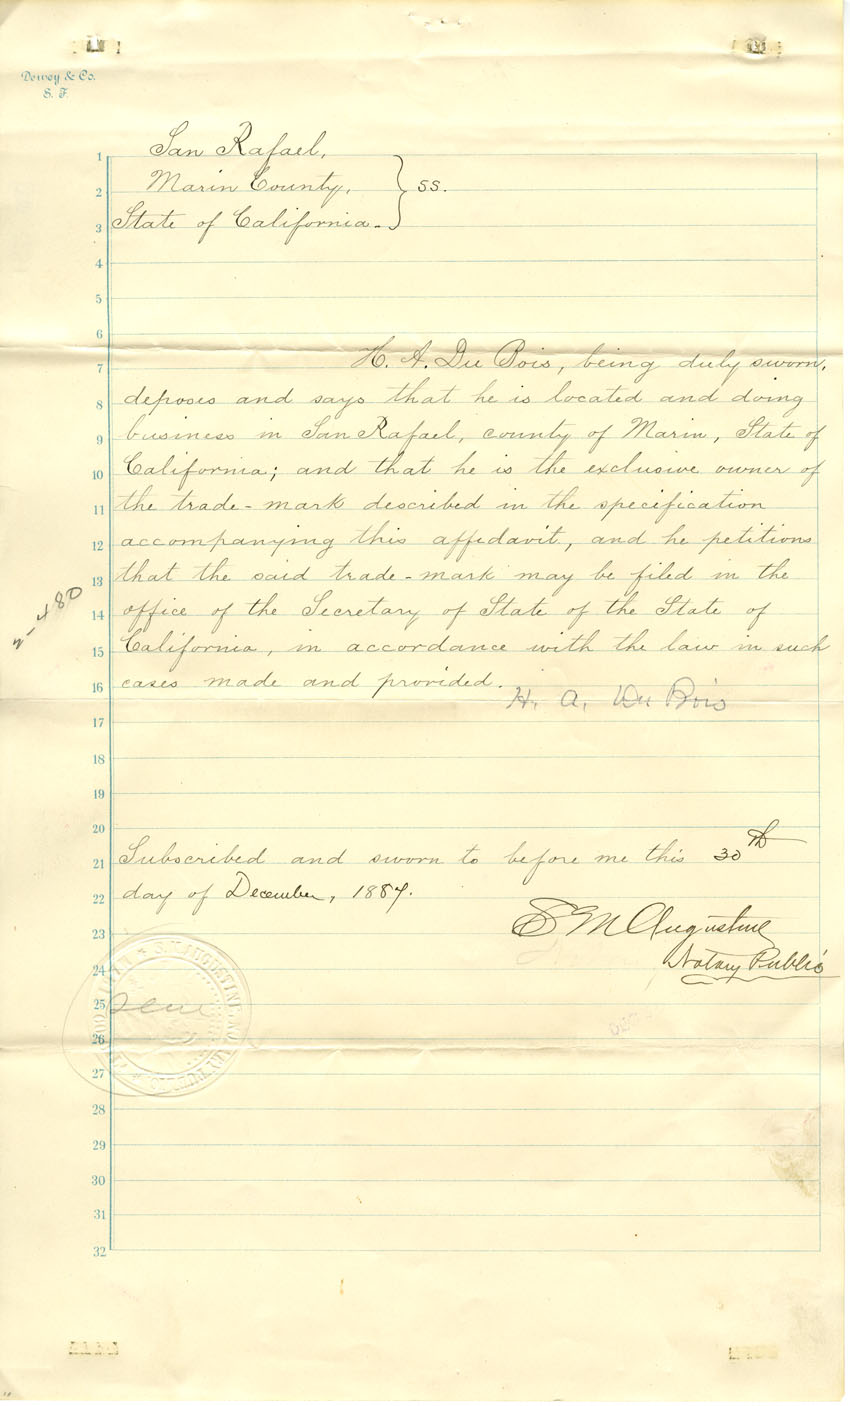 Dewey & Co.
S. F.
San Rafael,
Marin County, } ss.
State of California.
H. A. Du Bois, being duly sworn,
deposes and says that he is located and doing
business in San Rafael, county of Marin, State of
California; and that he is the exclusive owner of
the trade-mark described in the specification
accompanying this affidavit, and he petitions
that the said trade-mark may be filed in the
office of the Secretary of State of the State of
California, in accordance with the law in such
cases made and provided.
H. A. Du Bois
Subscribed and sworn to before me this 30th
day of December, 1887.
S M Augustine
Notary Public
1
2
3
4
5
6
7
8
9
10
11
12
13
14
15
16
17
18
19
20
21
22
23
24
25
26
27
28
29
30
31
32